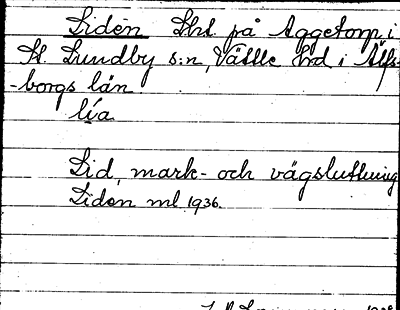 Liden Lht. på Aggetorp i
St. Lundby s:n, Vättle hrd i Älfs-
-borgs län.
lía
Lid, mark- och vägsluttning
Liden ml 1936.